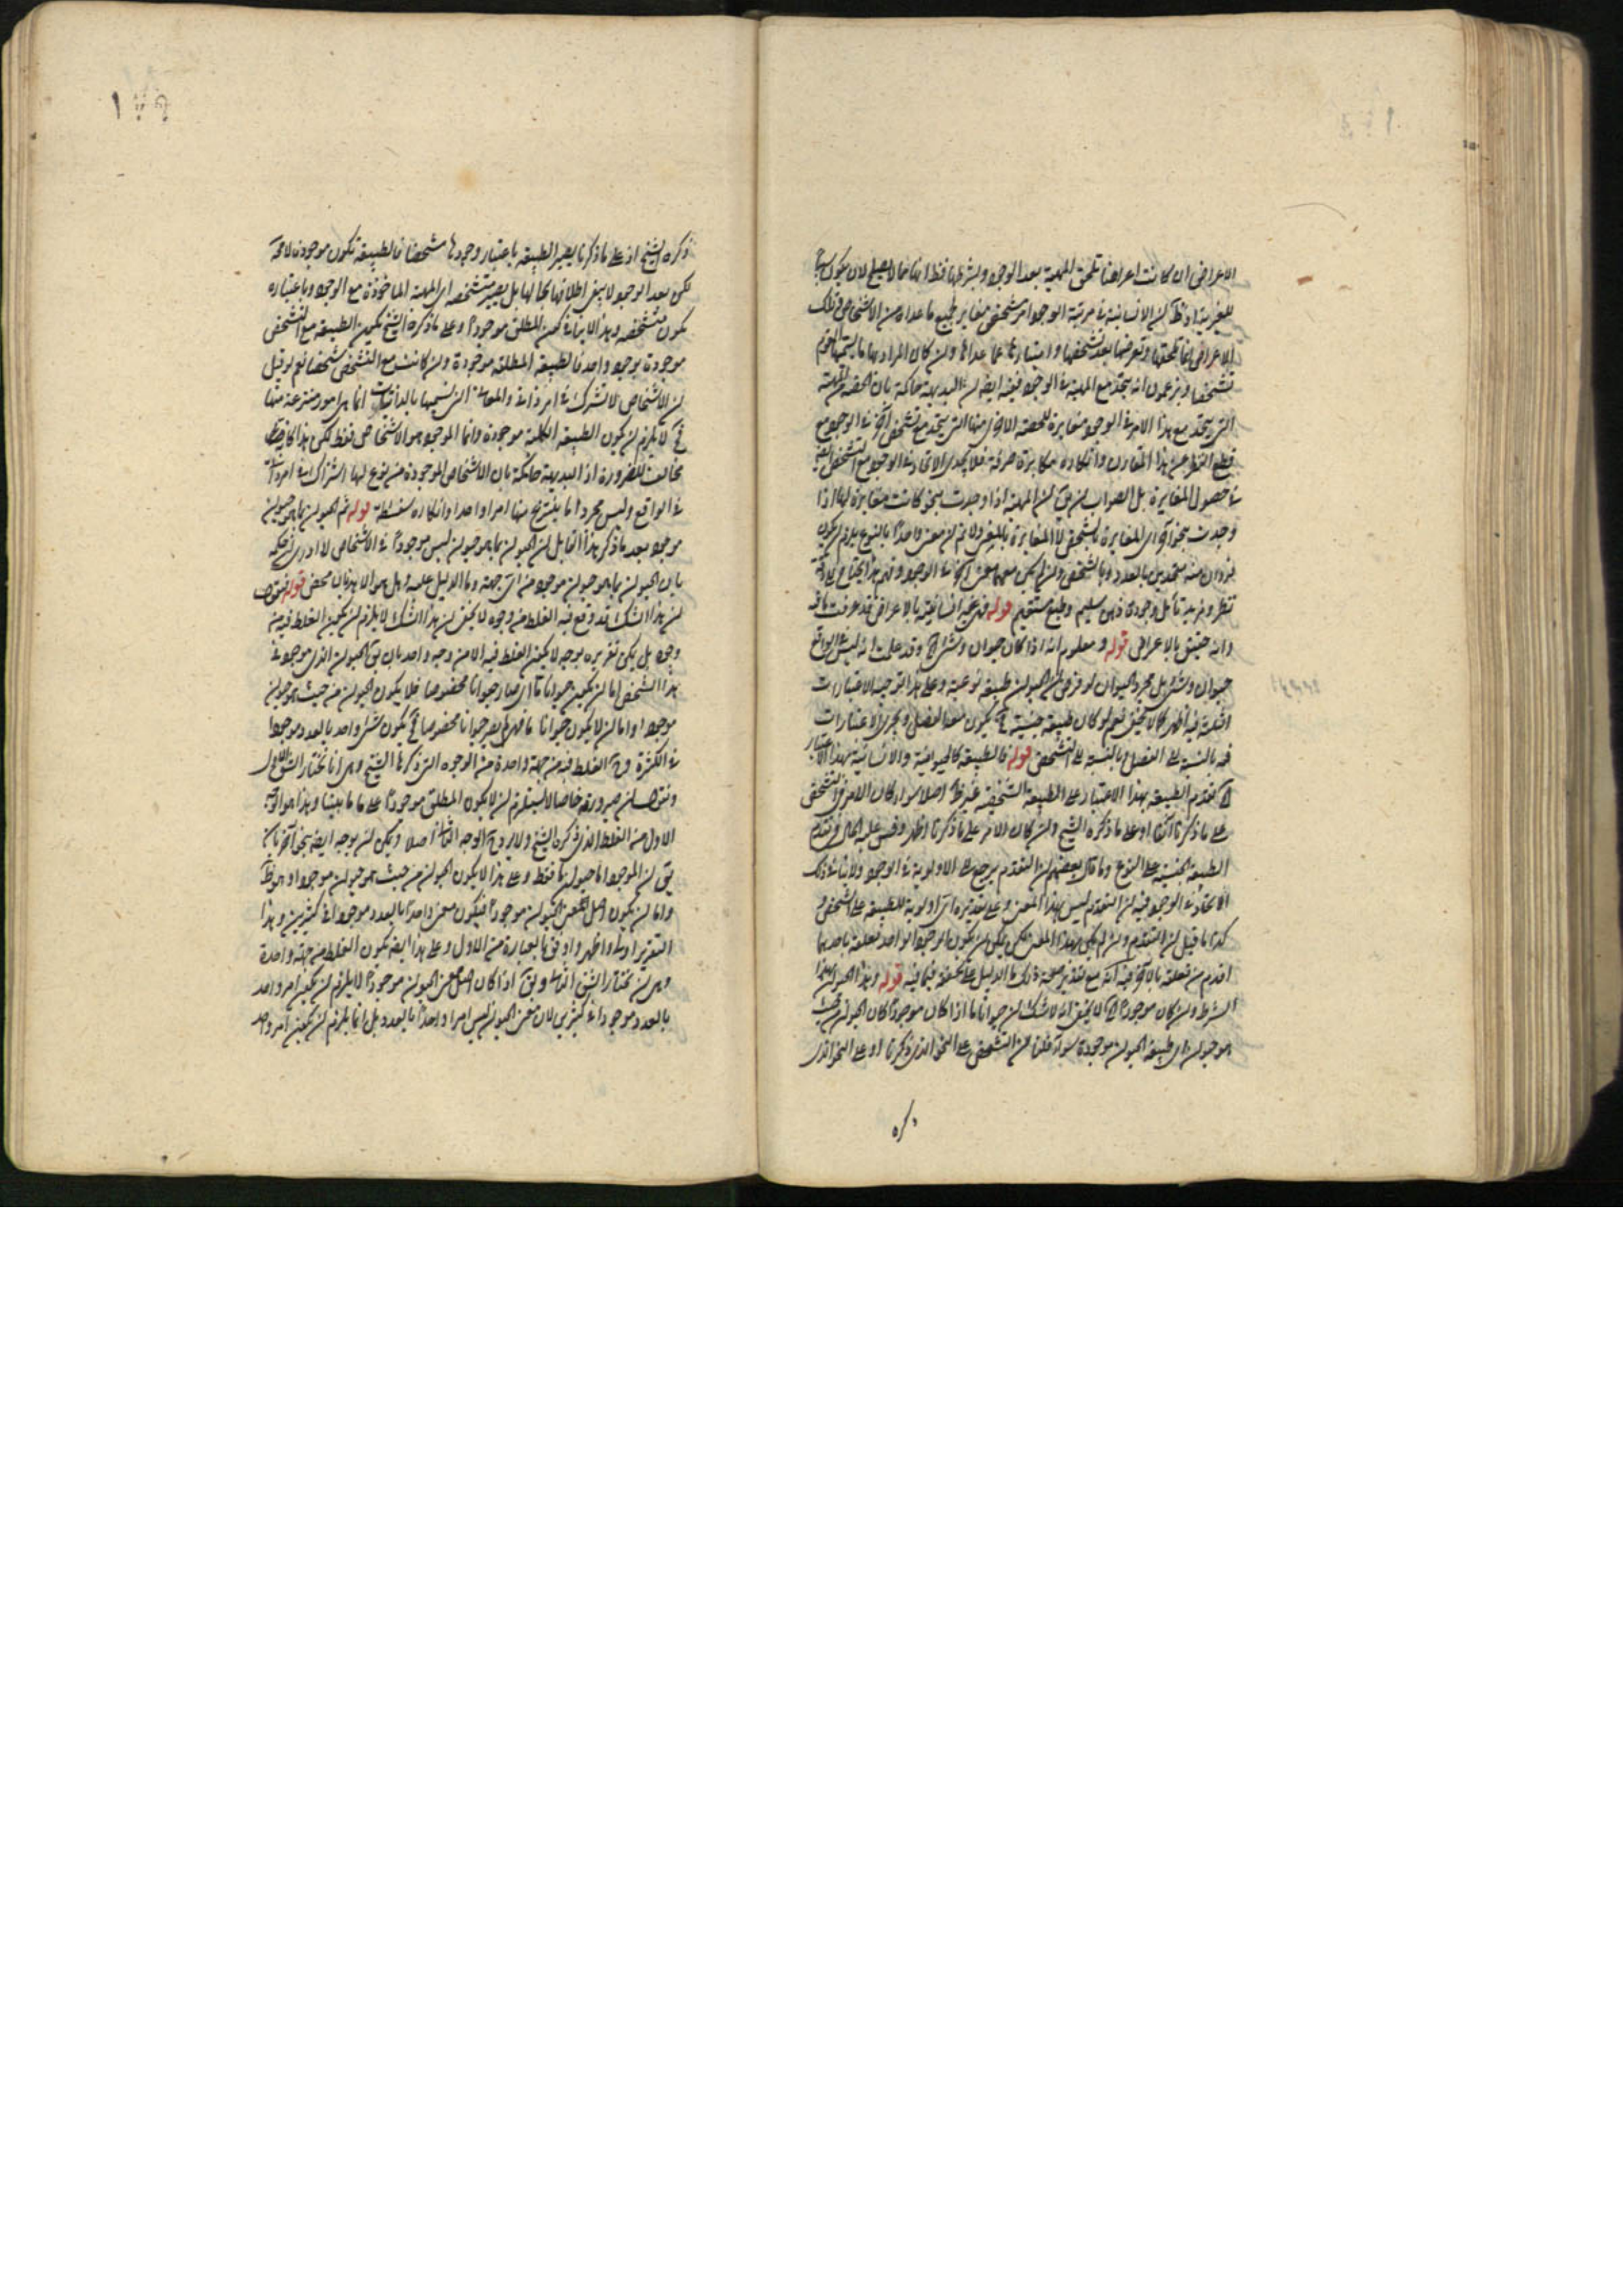 الاعراض ان كانت اعراضا تلحق المهية بعد الوجود وبشرطها فقط انها لا يصلح لان يكون سببا
للغيرية اذ ظ ان الانسانية في مرتبة الوجود امر شخصي مغاير لجميع ما عداه من الاشخاص وتلك
الاعراض انما تلحقها وتعرضها بعد تشخصها وامتيازها عما عداها وان كان المراد بها ما يسميها القوم
تشخصا ويزعمون انه يتحد مع المهية في الوجود ففيه ايضا ان البديهة حاكمة بان الحصة من المهية
التي يتحد مع هذا الامر في الوجود مغايرة للحصة الاخرى منها التي يتحد مع تشخص آخر في الوجود مع
قطع النظر عن هذا المقارن وانكاره مكابرة صرفة فلا يجدي الاتحاد في الوجود مع التشخص
في حصول المغايرة بل الصواب ان يق ان المهية اذا وجدت بنحو كانت مغايرة لها اذا
وجدت بنحو آخر اي المغايرة بالشخص لا المغايرة بالمعنى ولا ثم ان معنى واحدا بالنوع يلزم ان يكون
فردان منه متحدين بالعدد وبالشخص وان لم يكن معهما معنى آخر في الوجود وفهم هذا يحتاج الى دقة
نظر ومزيد تأمل وجودة ذهن سليم وطبع مستقيم قوله فهي غير انسانية بالاعراض قد عرفت ما فيه
وانه حقيق بالاعراض قوله ومعلوم انه اذا كان حيوان وشئ اه وقد علمت انه ليس في الواقع
حيوان وشئ بل مجرد الحيوان لو فرض ان الحيوان طبيعة نوعية وعلى هذا التوجيه الاعتبارات
الثلثة فيه اظهر كما لا يخفى نعم لو كان طبيعة جنسية فح يكون معه الفصل ويجرى الاعتبارات
فيه بالنسبة الى الفصل بالنسبة الى التشخص قوله فالطبيعة كالحيوانية والانسانية بهذا الاعتبار
اه تقدم الطبيعة بهذا الاعتبار على الطبيعة الشخصية غير ظ اصلا سواء كان الامر في التشخص
على ما ذكرنا آنفا او على ما ذكره الشيخ وان كان الامر على ما ذكرنا اظهر وقس عليه الحال في تقدم
الطبيعة الجنسية على النوع وما قال بعضهم ان التقدم يرجع الى الاولوية في الوجود ولا ينافي ذلك
الاتحاد في الوجود فيه ان التقدم ليس بهذا المعنى وعلى تقديره اي اولوية للطبيعة على الشخص و
كذا ما قيل ان التقدم وان لم يكن بهذا المعنى لكن يمكن ان يكون الوجود الواحد تعلقه باحدهما
اقدم من تعلقه بالآخر فيه انه مع تقدير صحة ذلك ما الدليل على تحققه فيما فيه قوله وهذا الحيوان بهذا
الشرط وان كان موجودا اه لا يخفى انه لا شك ان حيوانا ما اذا كان موجودا كان الحيوان من حيث
هو حيوان اي طبيعة الحيوان موجودة سواء قلنا ان التشخص على النحو الذي ذكرنا او على النحو الذي
ذكره
ذكره الشيخ اذ على ما ذكرنا يصير الطبيعة باعتبار وجودها شخصا فالطبيعة تكون موجودة لا محة
لكن بعد الوجود لا يبقى اطلاقها بحالها بل يصير متشخصة اي المهية الماخوذة مع الوجود وباعتباره
يكون متشخصة وهذا لا ينافي كون المطلق موجودا وعلى ما ذكره الشيخ يكون الطبيعة مع التشخص
موجودة بوجود واحد فالطبيعة المطلقة موجودة وان كانت مع التشخص شخصا نعم لو قيل
ان الاشخاص لا تشترك في امر ذاتي والمعاني التي نسميها بالذاتيات انما هي امور منتزعة منها
فح لا يلزم ان يكون الطبيعة الكلية موجودة وانما الموجود هو الاشخاص فقط لكن هذا كما ترى
مخالف للضرورة اذ البديهة حاكمة بان الاشخاص الموجودة من نوع لها اشتراك في امر ذاتي
في الواقع وليس مجرد انا ينتزع منها امرا واحدا وانكاره سفسطة قوله ثم الحيوان بما هو حيوان
موجود بعد ما ذكر هذا القائل ان الحيوان بما هو حيوان ليس موجودا في الاشخاص لا ادري ان حكمه
بان الحيوان بما هو حيوان موجود من اي جهة وما الدليل عليه وهل هو الا هذيان محض قوله فنقول
ان هذا الشك قد وقع فيه الغلط من وجوه لا يخفى ان هذا الشك لا يلزم ان يكون الغلط فيه من
وجوه بل يمكن تقريره بوجه لا يكون الغلط فيه الا من وجه واحد بان يق الحيوان الذي موجود في
هذا الشخص اما ان يكون حيوانا ما اي صار حيوانا مخصوصا فلا يكون الحيوان من حيث هو حيوان
موجودا واما ان لا يكون حيوانا ما فهو لم يصر حيوانا مخصوصا فح يكون شئ واحد بالعدد موجودا
في الكثرة وح الغلط فيه من جهة واحدة من الوجوه التي ذكرها الشيخ وهي انا نختار الشق الاول
ونقول ان صيرورته خاصا لا يستلزم ان لا يكون المطلق موجودا على ما بينا وهذا هو الوجه
الاول من الغلط الذي ذكره الشيخ ولا يرد ح الوجه الثاني اصلا ويمكن ان يوجه ايضا بنحو آخر بان
يق ان الموجود اما حيوان ما فقط وعلى هذا لا يكون الحيوان من حيث هو حيوان موجودا وهو ظ
واما ان يكون اصل معنى الحيوان موجودا فيكون معنى واحدا بالعدد موجودا في كثيرين وهذا
التقرير اولى واظهر واوفق بالعبارة من الاول وعلى هذا ايضا يكون الغلط من جهة واحدة
وهي ان نختار الشق الثاني ويق اذا كان اصل معنى الحيوان موجودا لا يلزم ان يكون امر واحد
بالعدد موجودا في كثيرين لان معنى الحيوان ليس امرا واحدا بالعدد بل انما يلزم ان يكون امر واحد